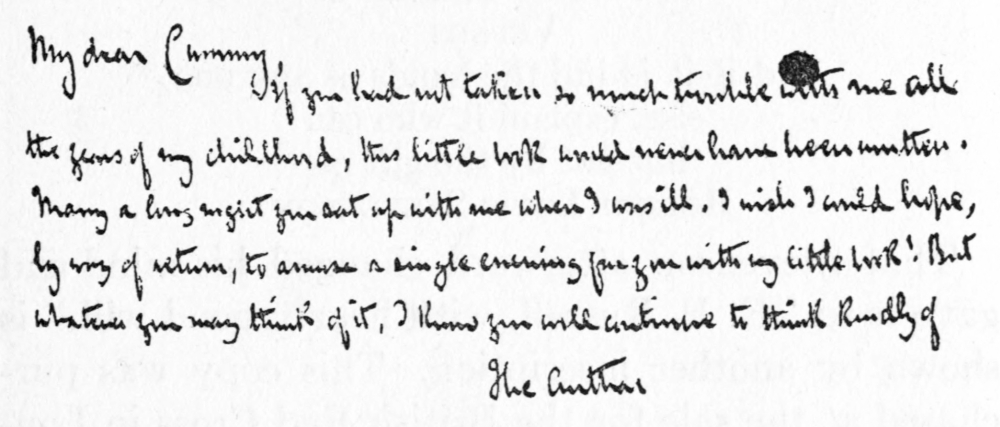 My dear Cummy,
If you had not taken so much trouble with me all
the years of my childhood, this little book would never have been written.
Many a long night you sat up with me when I was ill. I wish I could hope,
by way of return, to amuse a single evening for you with my little book! But
whatever you may think of it, I know you will continue to think kindly of
The Author